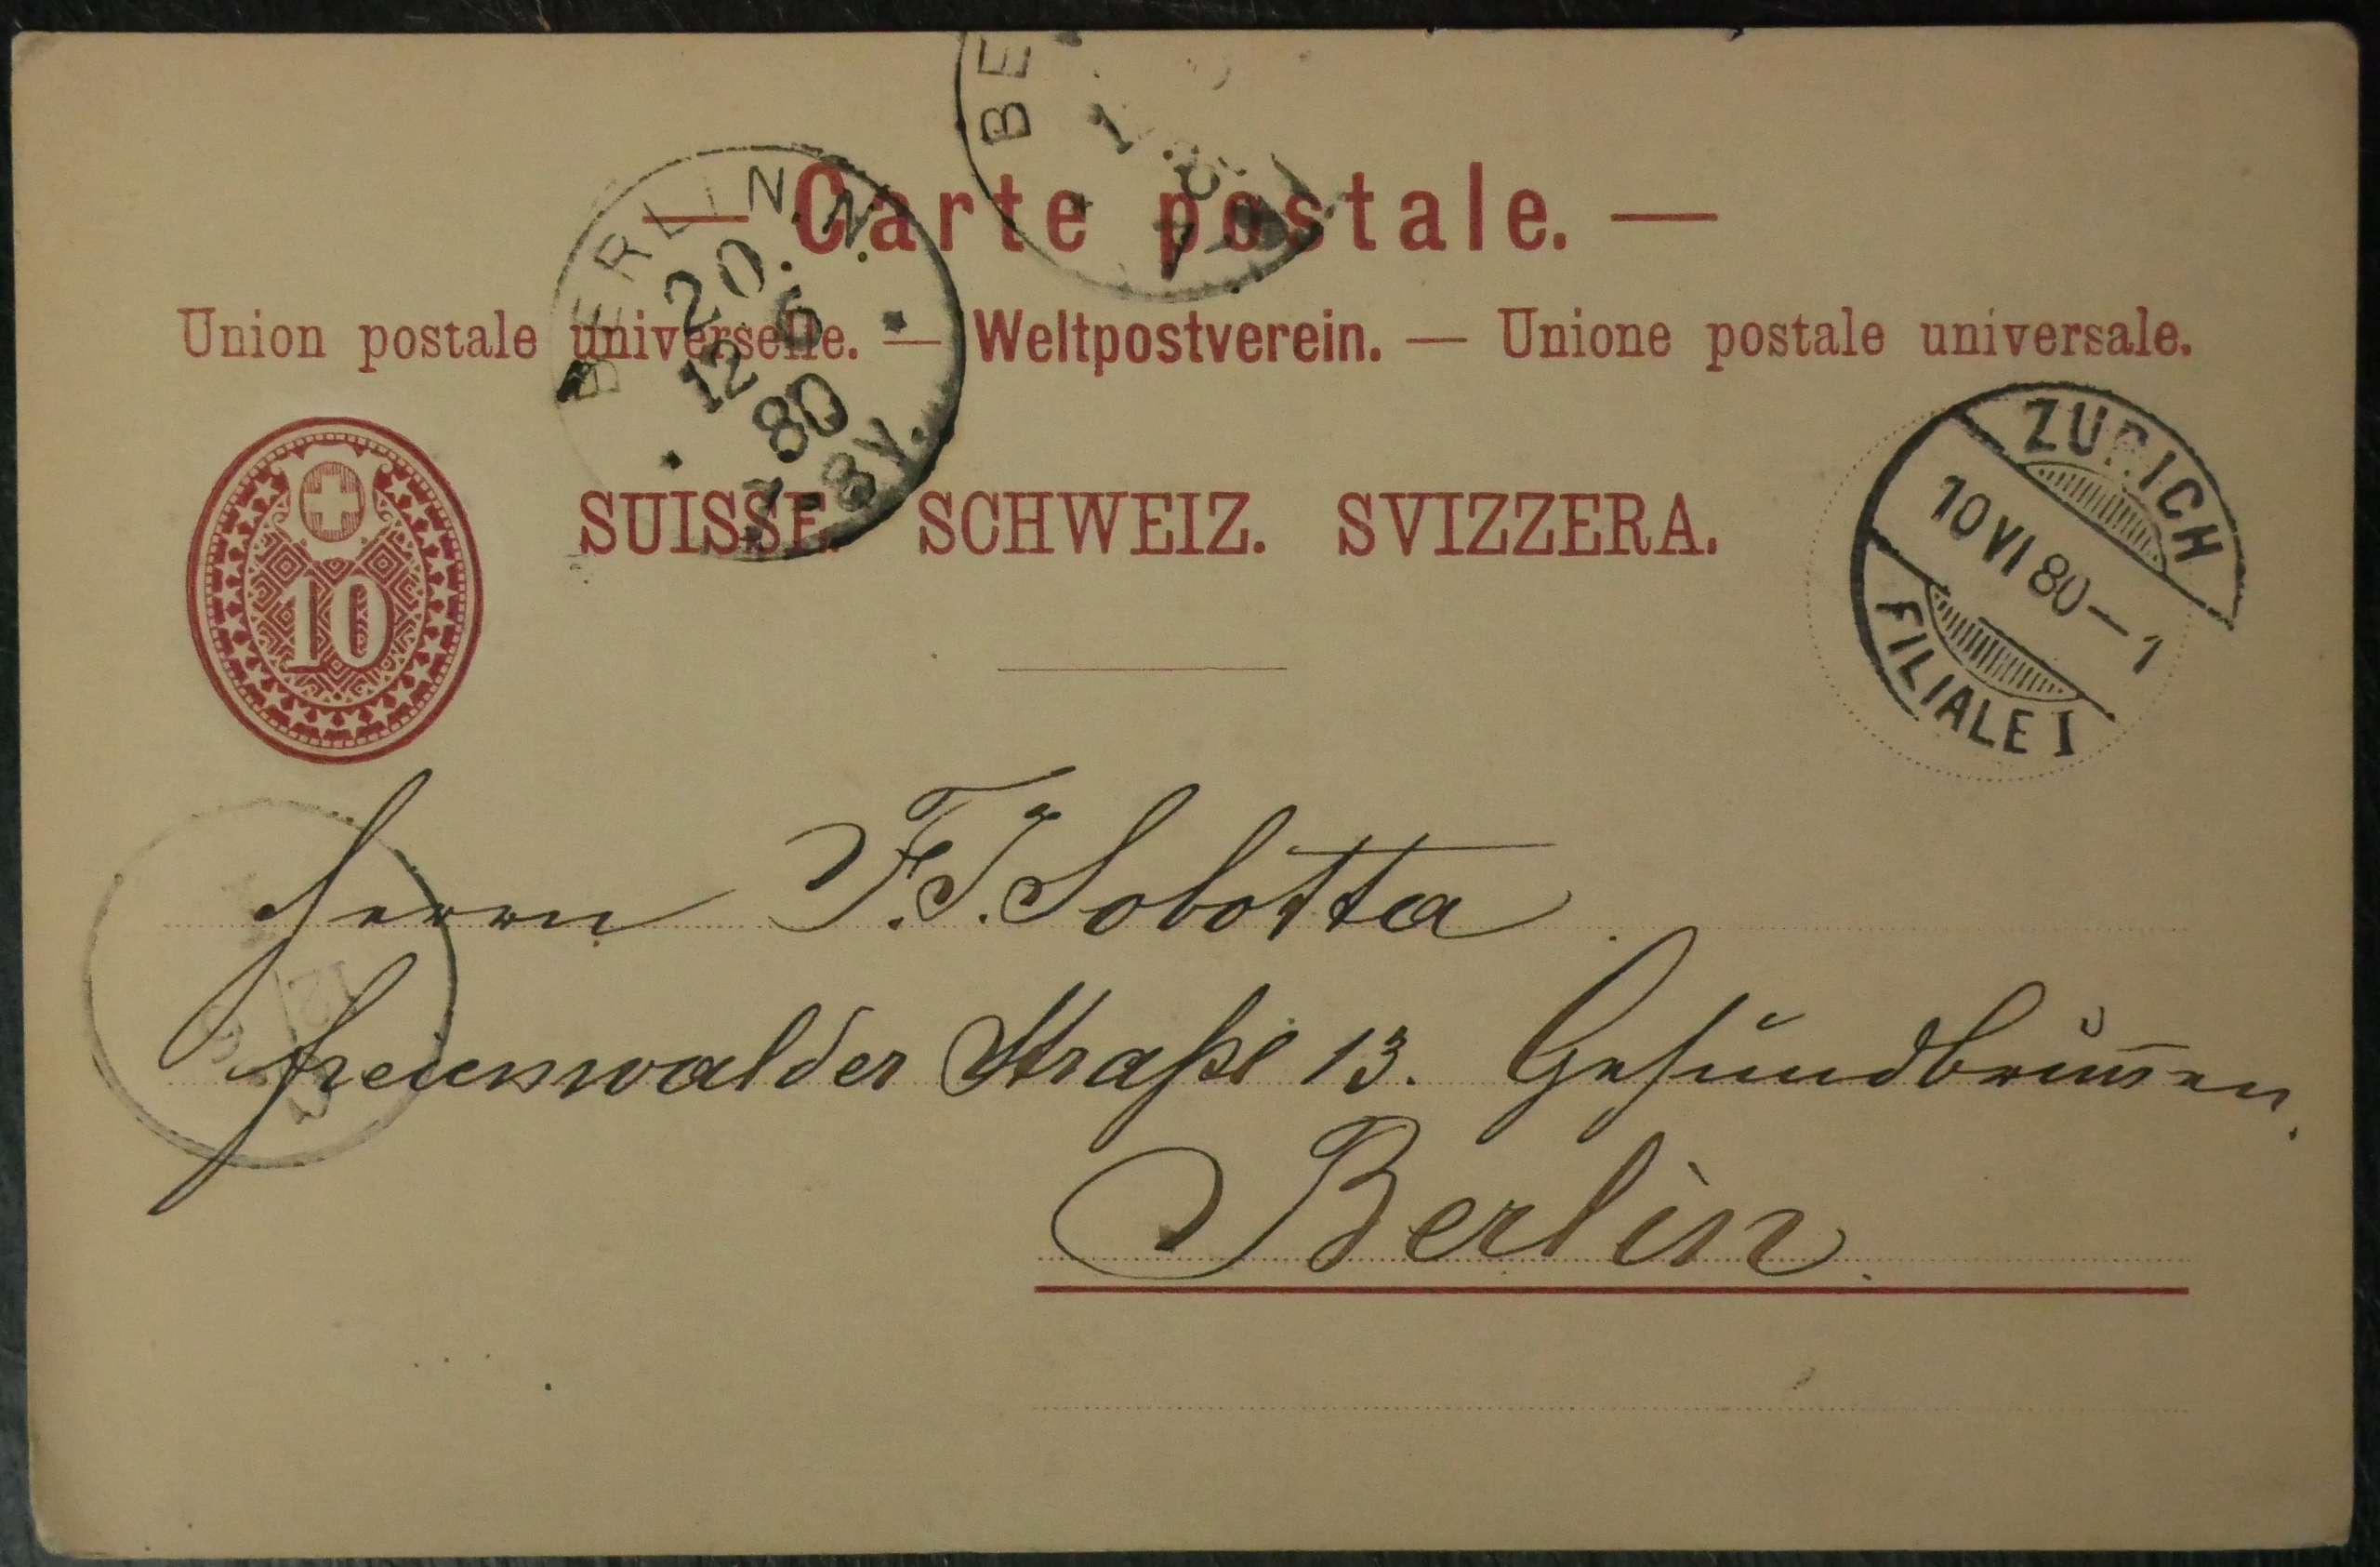 — Carte postale. —
Union postale universelle. — Weltpostverein. — Unione postale universale.
SUISSE. SCHWEIZ. SVIZZERA.
10
BERLIN. N.
20.
12 6
80
7-8V.
BE
ZURICH
10 VI 80—1
FILIALE I
12
6
Herrn F. J. Sobotta
Freienwalder Straße 13. Gesundbrunnen.
Berlin.